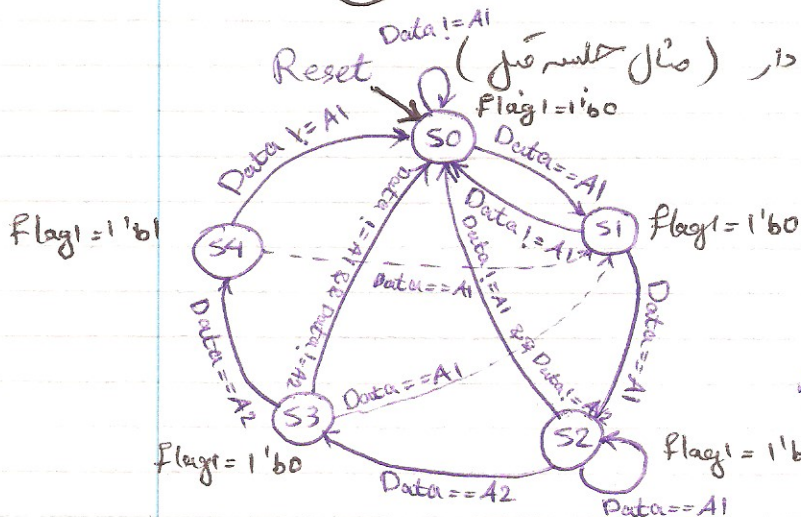 Data != A1
دار (مثال جلسه قبل)
Reset
flag1 = 1'b0
S0
Data != A1
Data == A1
Data != A1
S1
flag1 = 1'b0
flag1 = 1'b1
S4
Data == A1
Data != A1 && Data != A2
Data != A1 && Data != A2
Data == A1
Data == A2
Data == A1
S3
S2
flag1 = 1'b0
flag1 = 1'b
Data == A2
Data == A1